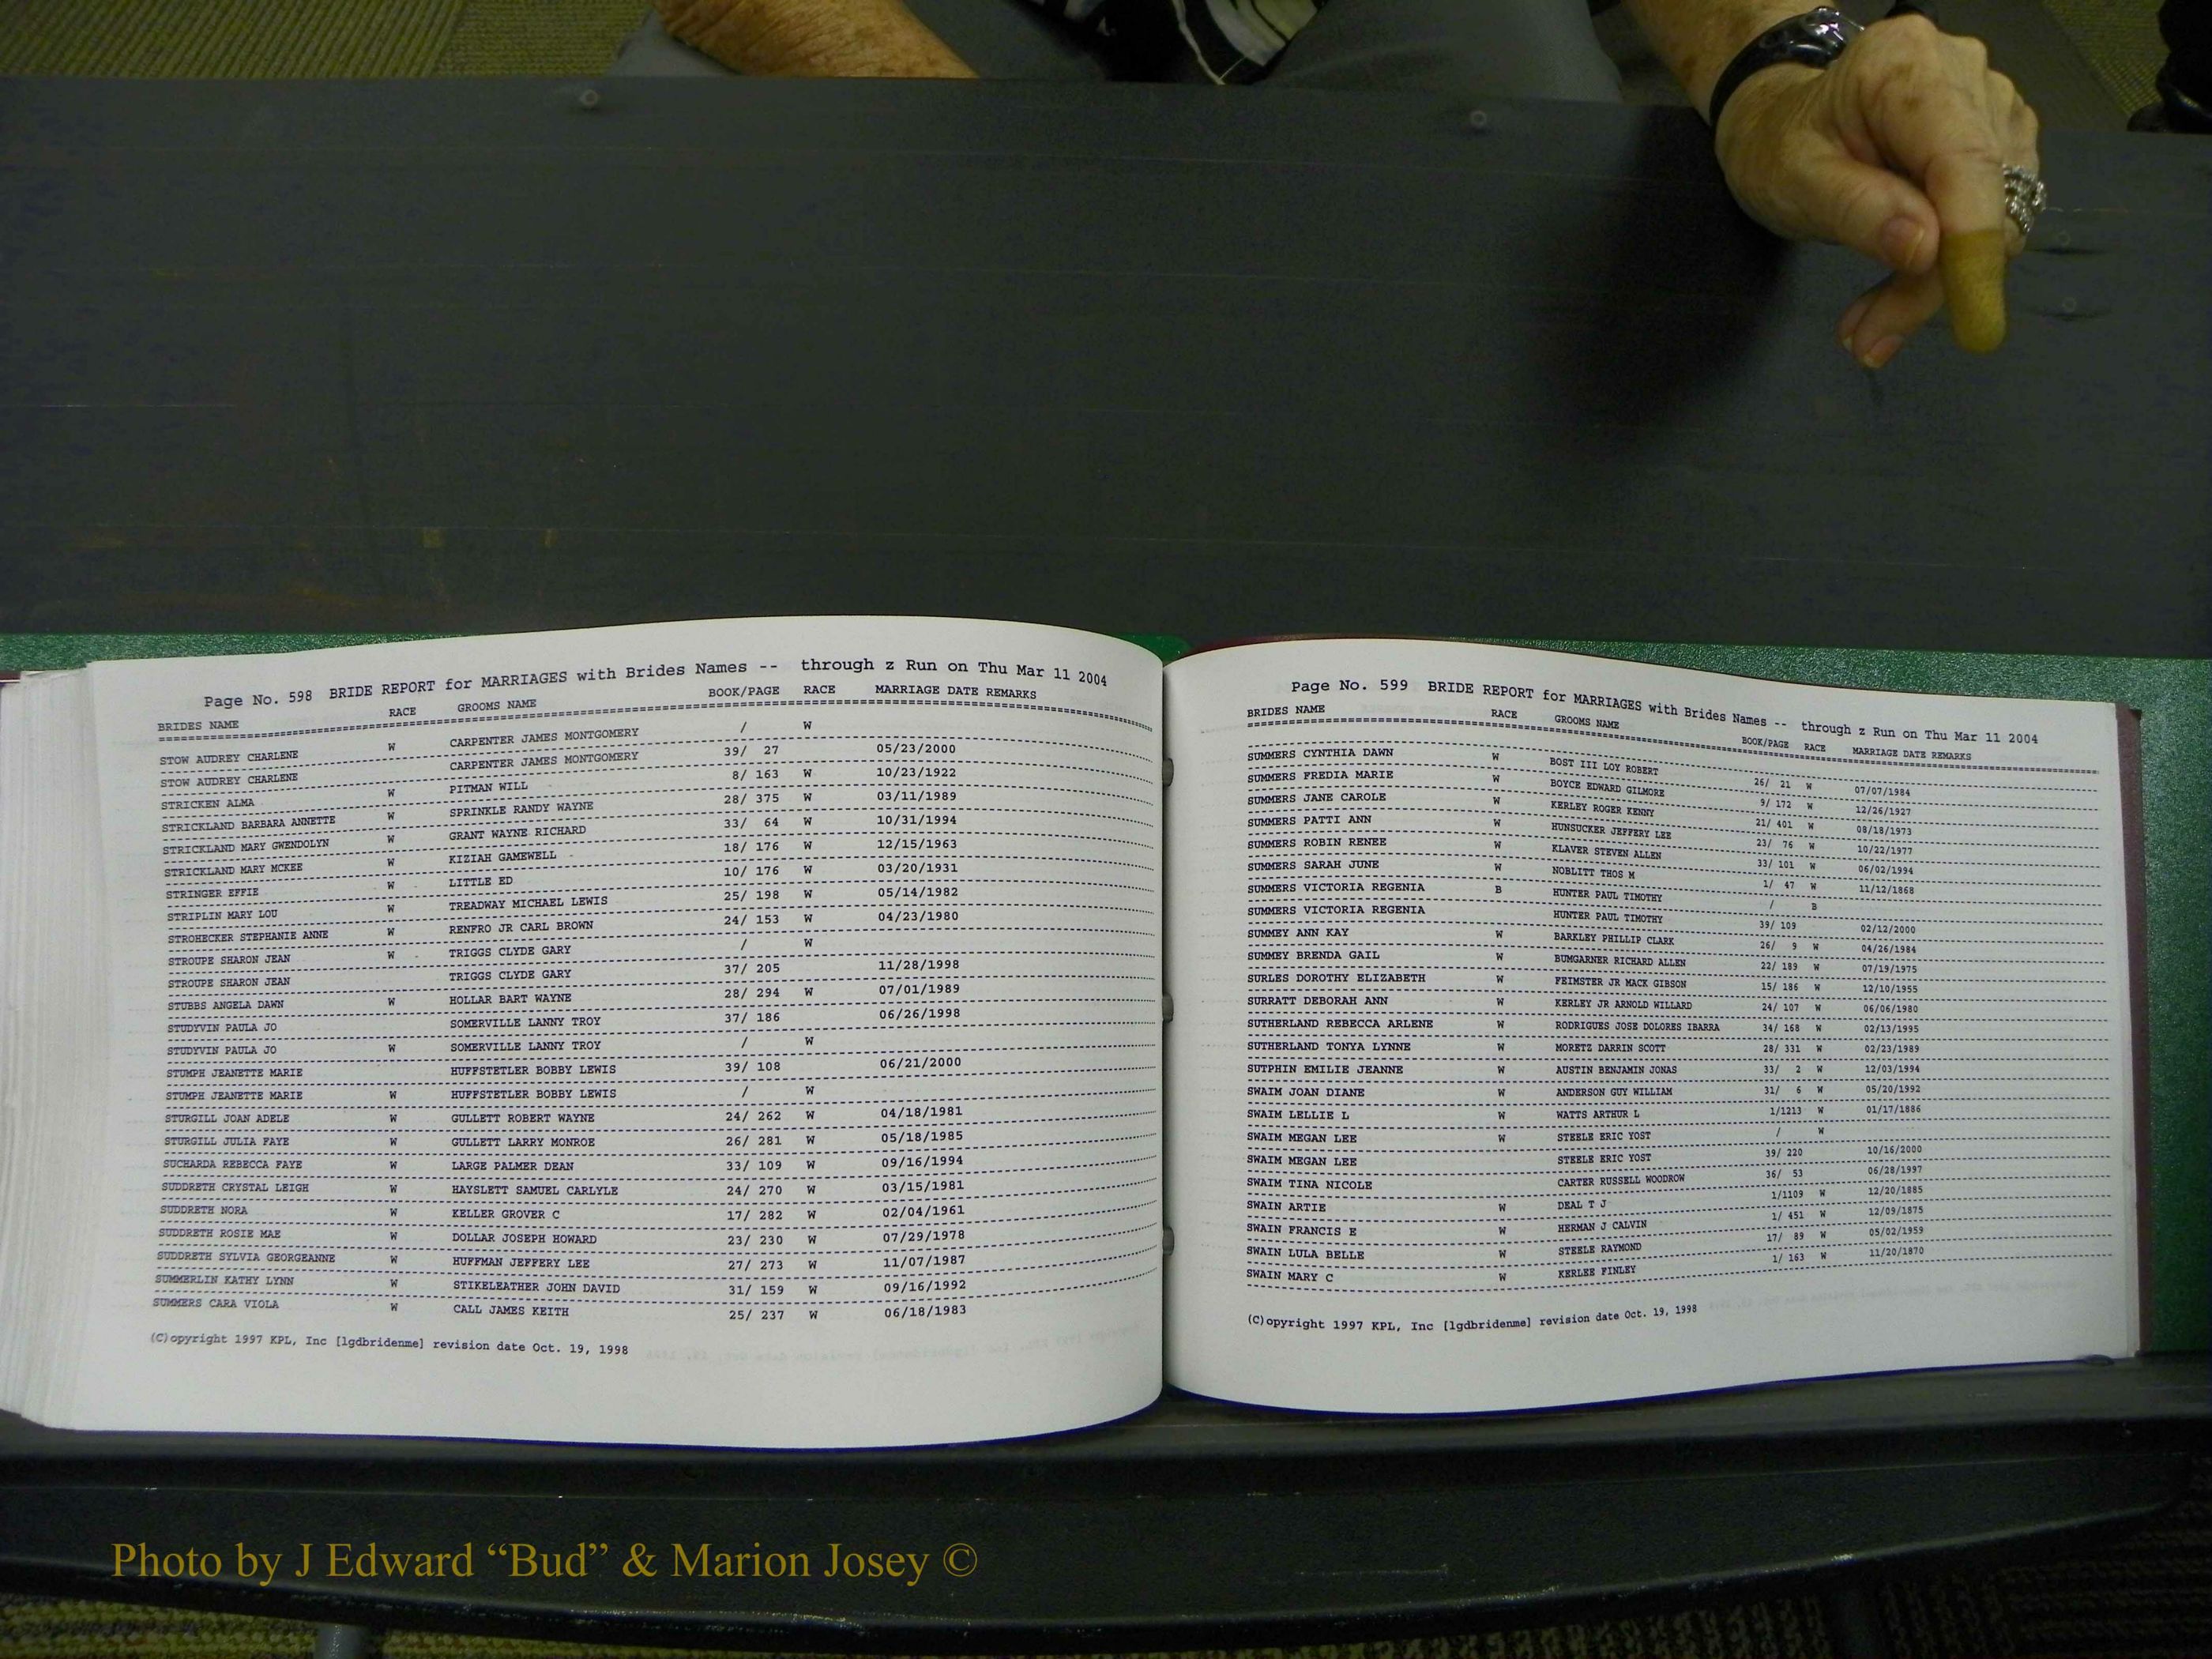 Page No. 598 BRIDE REPORT for MARRIAGES with Brides Names -- through z Run on Thu Mar 11 2004
BRIDES NAME RACE GROOMS NAME BOOK/PAGE RACE MARRIAGE DATE REMARKS
STOW AUDREY CHARLENE W CARPENTER JAMES MONTGOMERY / W
STOW AUDREY CHARLENE CARPENTER JAMES MONTGOMERY 39/ 27 05/23/2000
STRICKEN ALMA W PITMAN WILL 8/ 163 W 10/23/1922
STRICKLAND BARBARA ANNETTE W SPRINKLE RANDY WAYNE 28/ 375 W 03/11/1989
STRICKLAND MARY GWENDOLYN W GRANT WAYNE RICHARD 33/ 64 W 10/31/1994
STRICKLAND MARY MCKEE W KIZIAH GAMEWELL 18/ 176 W 12/15/1963
STRINGER EFFIE W LITTLE ED 10/ 176 W 03/20/1931
STRIPLIN MARY LOU W TREADWAY MICHAEL LEWIS 25/ 198 W 05/14/1982
STROHECKER STEPHANIE ANNE W RENFRO JR CARL BROWN 24/ 153 W 04/23/1980
STROUPE SHARON JEAN W TRIGGS CLYDE GARY / W
STROUPE SHARON JEAN TRIGGS CLYDE GARY 37/ 205 11/28/1998
STUBBS ANGELA DAWN W HOLLAR BART WAYNE 28/ 294 W 07/01/1989
STUDYVIN PAULA JO SOMERVILLE LANNY TROY 37/ 186 06/26/1998
STUDYVIN PAULA JO W SOMERVILLE LANNY TROY / W
STUMPH JEANETTE MARIE HUFFSTETLER BOBBY LEWIS 39/ 108 06/21/2000
STUMPH JEANETTE MARIE W HUFFSTETLER BOBBY LEWIS / W
STURGILL JOAN ADELE W GULLETT ROBERT WAYNE 24/ 262 W 04/18/1981
STURGILL JULIA FAYE W GULLETT LARRY MONROE 26/ 281 W 05/18/1985
SUCHARDA REBECCA FAYE W LARGE PALMER DEAN 33/ 109 W 09/16/1994
SUDDRETH CRYSTAL LEIGH W HAYSLETT SAMUEL CARLYLE 24/ 270 W 03/15/1981
SUDDRETH NORA W KELLER GROVER C 17/ 282 W 02/04/1961
SUDDRETH ROSIE MAE W DOLLAR JOSEPH HOWARD 23/ 230 W 07/29/1978
SUDDRETH SYLVIA GEORGEANNE W HUFFMAN JEFFERY LEE 27/ 273 W 11/07/1987
SUMMERLIN KATHY LYNN W STIKELEATHER JOHN DAVID 31/ 159 W 09/16/1992
SUMMERS CARA VIOLA W CALL JAMES KEITH 25/ 237 W 06/18/1983
(C)opyright 1997 KPL, Inc [lgdbridenme] revision date Oct. 19, 1998
Page No. 599 BRIDE REPORT for MARRIAGES with Brides Names -- through z Run on Thu Mar 11 2004
BRIDES NAME RACE GROOMS NAME BOOK/PAGE RACE MARRIAGE DATE REMARKS
SUMMERS CYNTHIA DAWN W BOST III LOY ROBERT 26/ 21 W 07/07/1984
SUMMERS FREDIA MARIE W BOYCE EDWARD GILMORE 9/ 172 W 12/26/1927
SUMMERS JANE CAROLE W KERLEY ROGER KENNY 21/ 401 W 08/18/1973
SUMMERS PATTI ANN W HUNSUCKER JEFFERY LEE 23/ 76 W 10/22/1977
SUMMERS ROBIN RENEE W KLAVER STEVEN ALLEN 33/ 101 W 06/02/1994
SUMMERS SARAH JUNE W NOBLITT THOS M 1/ 47 W 11/12/1868
SUMMERS VICTORIA REGENIA B HUNTER PAUL TIMOTHY / B
SUMMERS VICTORIA REGENIA HUNTER PAUL TIMOTHY 39/ 109 02/12/2000
SUMMEY ANN KAY W BARKLEY PHILLIP CLARK 26/ 9 W 04/26/1984
SUMMEY BRENDA GAIL W BUMGARNER RICHARD ALLEN 22/ 189 W 07/19/1975
SURLES DOROTHY ELIZABETH W FEIMSTER JR MACK GIBSON 15/ 186 W 12/10/1955
SURRATT DEBORAH ANN W KERLEY JR ARNOLD WILLARD 24/ 107 W 06/06/1980
SUTHERLAND REBECCA ARLENE W RODRIGUES JOSE DOLORES IBARRA 34/ 168 W 02/13/1995
SUTHERLAND TONYA LYNNE W MORETZ DARRIN SCOTT 28/ 331 W 02/23/1989
SUTPHIN EMILIE JEANNE W AUSTIN BENJAMIN JONAS 33/ 2 W 12/03/1994
SWAIM JOAN DIANE W ANDERSON GUY WILLIAM 31/ 6 W 05/20/1992
SWAIM LELLIE L W WATTS ARTHUR L 1/1213 W 01/17/1886
SWAIM MEGAN LEE W STEELE ERIC YOST / W
SWAIM MEGAN LEE STEELE ERIC YOST 39/ 220 10/16/2000
SWAIM TINA NICOLE CARTER RUSSELL WOODROW 36/ 53 06/28/1997
SWAIN ARTIE W DEAL T J 1/1109 W 12/20/1885
SWAIN FRANCIS E W HERMAN J CALVIN 1/ 451 W 12/09/1875
SWAIN LULA BELLE W STEELE RAYMOND 17/ 89 W 05/02/1959
SWAIN MARY C W KERLEE FINLEY 1/ 163 W 11/20/1870
(C)opyright 1997 KPL, Inc [lgdbridenme] revision date Oct. 19, 1998
Photo by J Edward “Bud” & Marion Josey ©